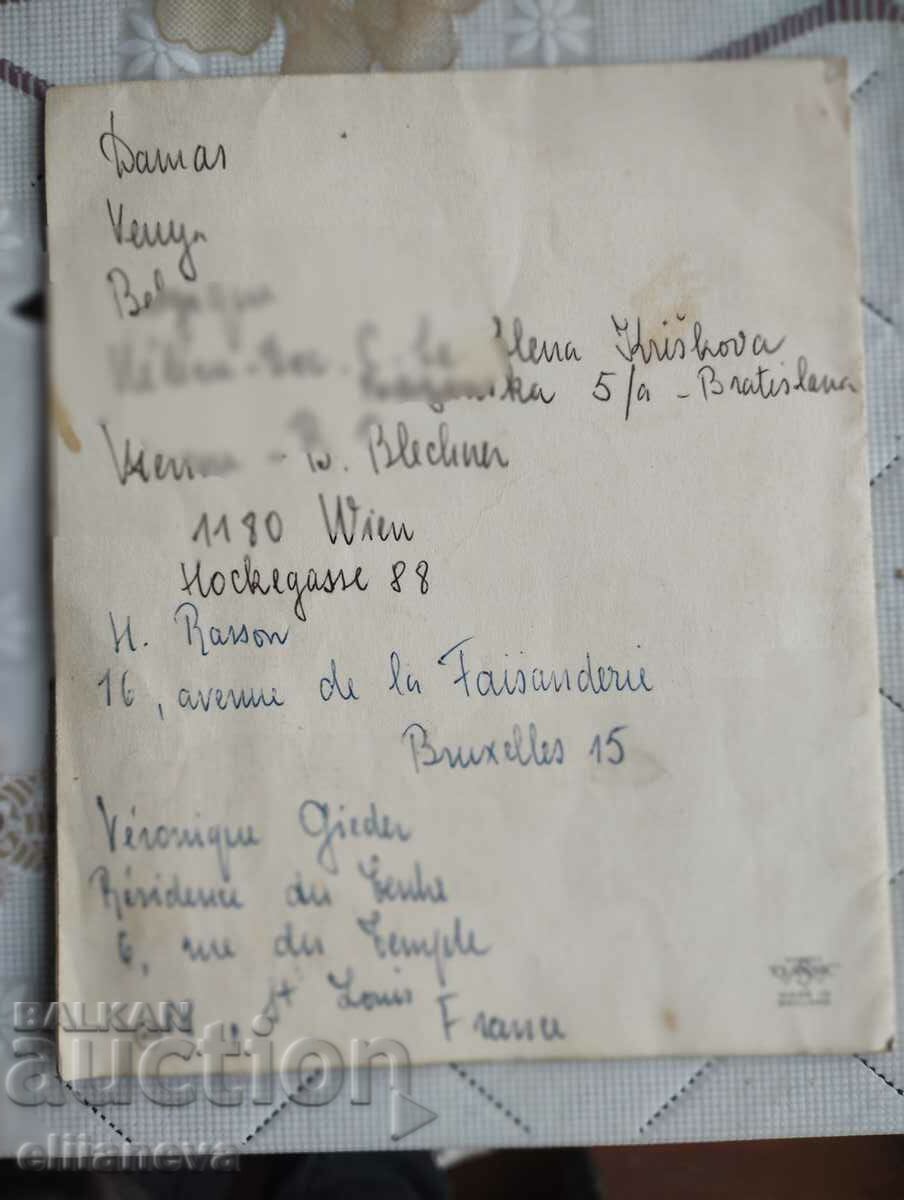 Damas
Belgique
Elena Kriškova
5/a - Bratislava
Blechner
1180 Wien
Hockegasse 88
H. Rasson
16, avenue de la Faisanderie
Bruxelles 15
Véronique Gieder
Résidence du
6, rue du Temple
St Louis
France
BALKAN
auction
elijaneva